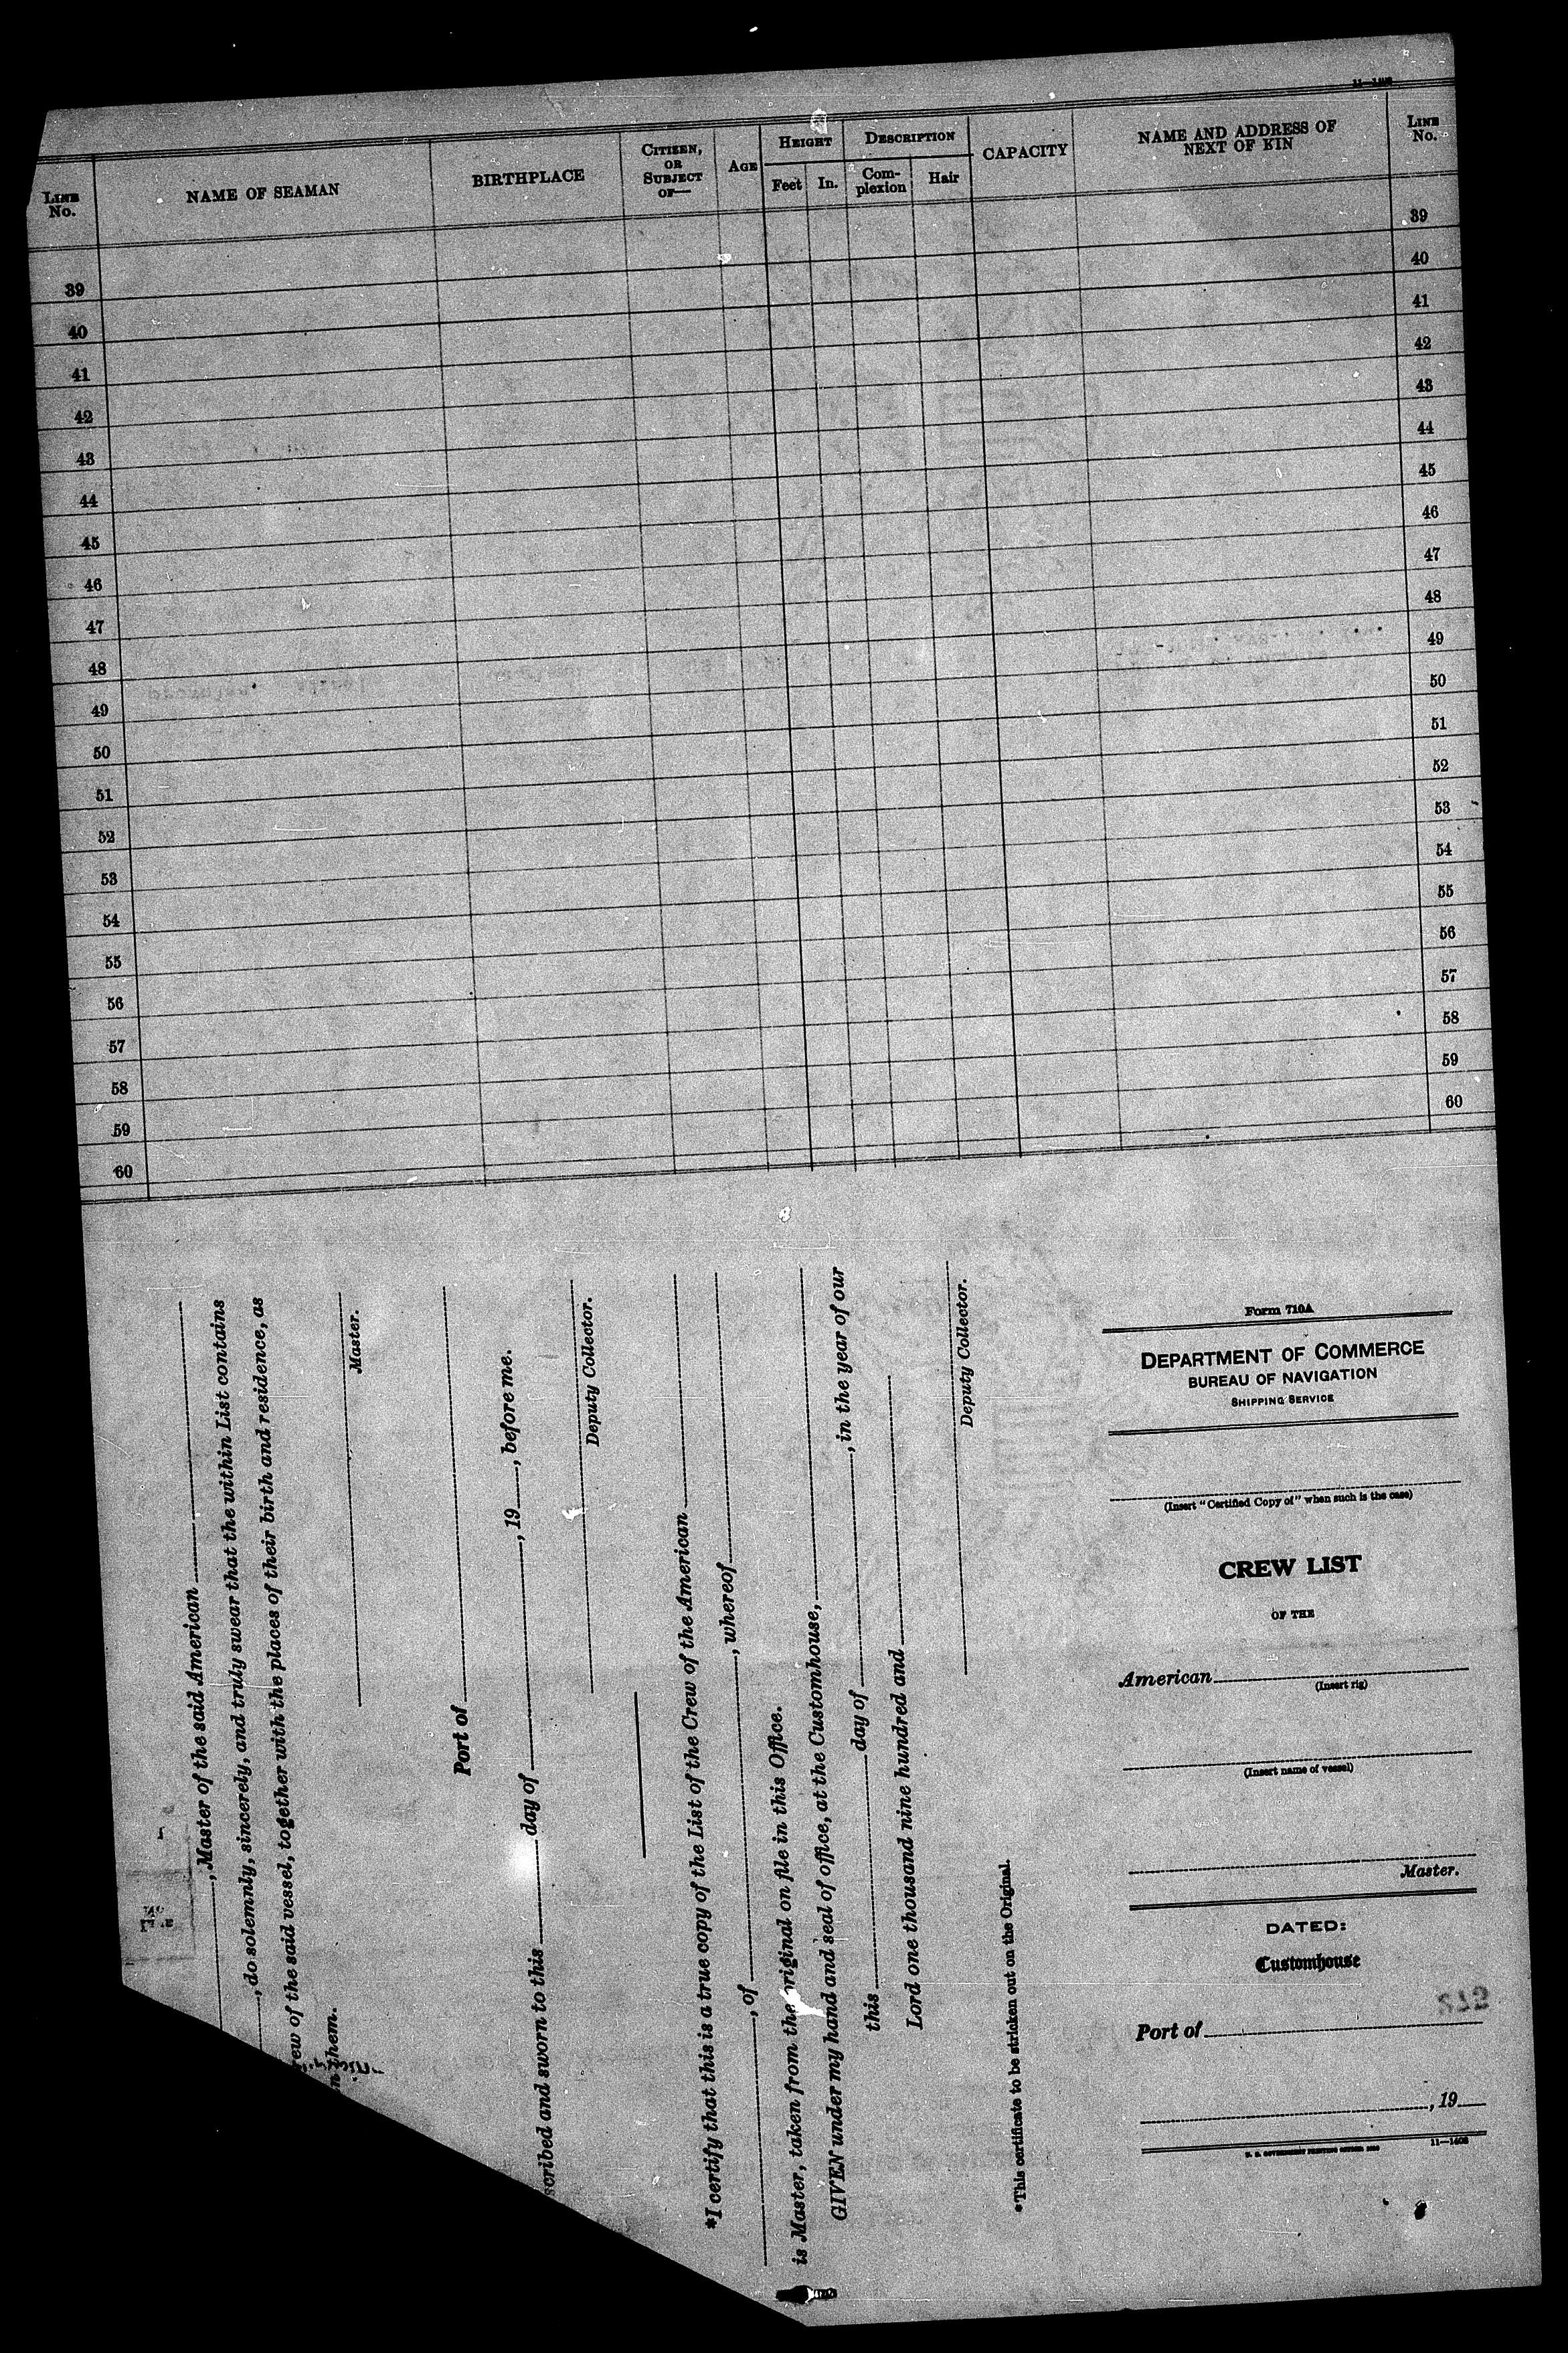 11—1408
LINE No. NAME OF SEAMAN BIRTHPLACE CITIZEN, OR SUBJECT OF— AGE HEIGHT Feet In. DESCRIPTION Complexion Hair CAPACITY NAME AND ADDRESS OF NEXT OF KIN LINE No.
39 39
40 40
41 41
42 42
43 43
44 44
45 45
46 46
47 47
48 48
49 49
50 50
51 51
52 52
53 53
54 54
55 55
56 56
57 57
58 58
59 59
60 60
, Master of the said American
, do solemnly, sincerely, and truly swear that the within List contains
rew of the said vessel, together with the places of their birth and residence, as
n them.
Master.
Port of
scribed and sworn to this day of , 19 , before me.
Deputy Collector.
*I certify that this is a true copy of the List of the Crew of the American
, of , whereof
is Master, taken from the original on file in this Office.
GIVEN under my hand and seal of office, at the Customhouse,
this day of , in the year of our
Lord one thousand nine hundred and
Deputy Collector.
*This certificate to be stricken out on the Original.
Form 710A
DEPARTMENT OF COMMERCE
BUREAU OF NAVIGATION
SHIPPING SERVICE
(Insert "Certified Copy of" when such is the case)
CREW LIST
OF THE
American
(Insert rig)
(Insert name of vessel)
Master.
DATED:
Customhouse
Port of
, 19
11—1408